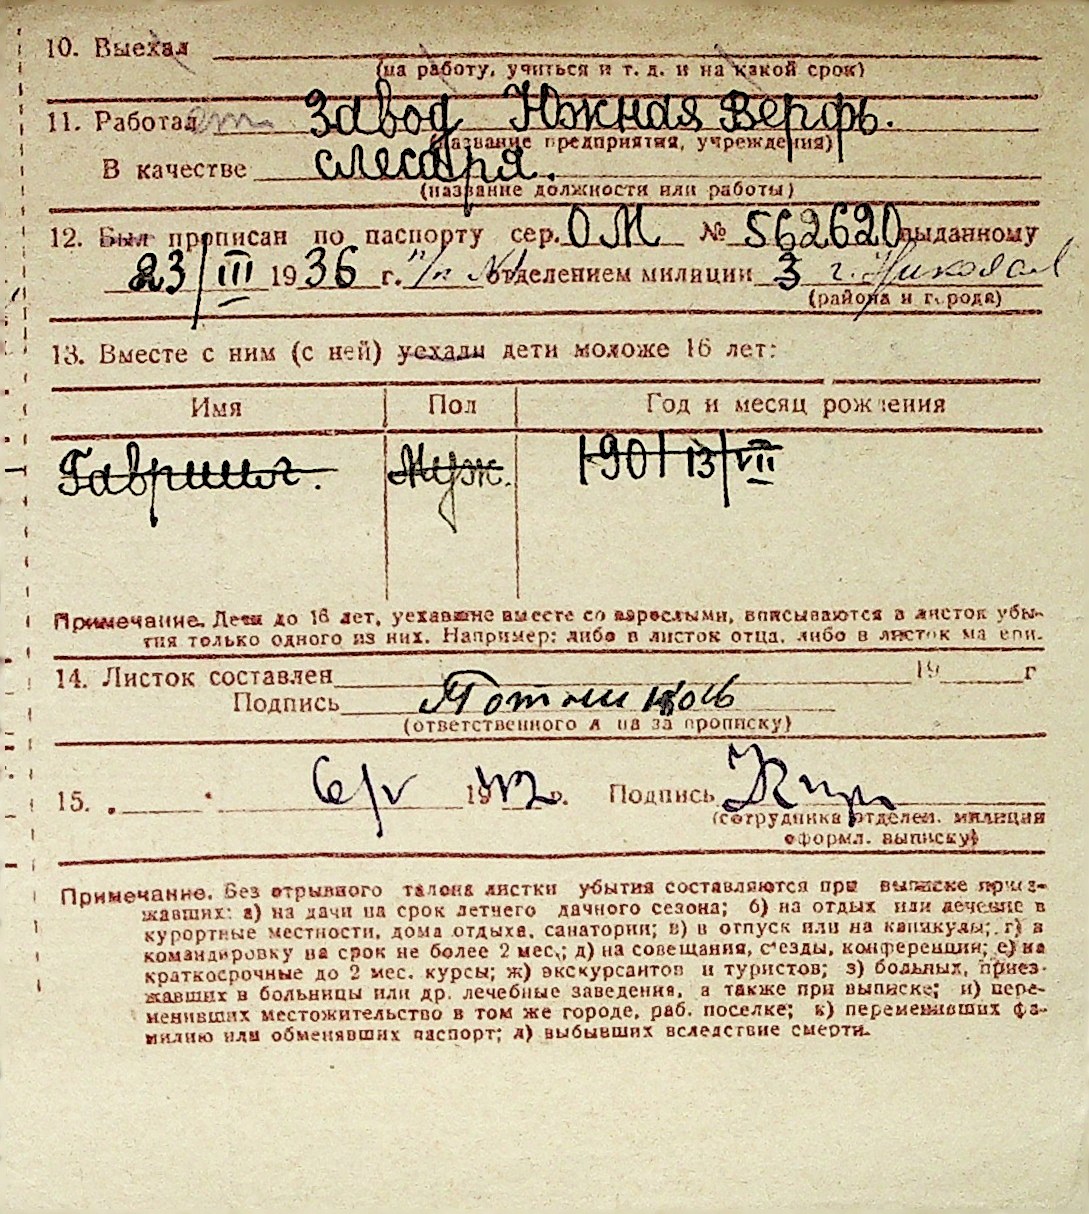 10. Выехал
(на работу, учиться и т. д. и на какой срок)
11. Работает Завод Южная Верфь.
(название предприятия, учреждения)
В качестве слесаря.
(название должности или работы)
12. Был прописан по паспорту сер. ОМ № 562620 выданному
23/III 1936 г. п/п № отделением милиции 3 г. Николаев
(района и города)
13. Вместе с ним (с ней) уехали дети моложе 16 лет:
Имя Пол Год и месяц рождения
Гавриил. Муж. 1901 13/VII
Примечание. Дети до 16 лет, уехавшие вместе со взрослыми, вписываются в листок убы-
тия только одного из них. Например: либо в листок отца, либо в листок ма ери.
14. Листок составлен 19 г
Подпись
(ответственного л ца за прописку)
15. 6/V 1942 г. Подпись
(сотрудника отделен. милиции
оформл. выписку)
Примечание. Без отрывного талона листки убытия составляются при выписке приез-
жавших: а) на дачи на срок летнего дачного сезона; б) на отдых или лечение в
курортные местности, дома отдыха, санатории; в) в отпуск или на каникулы; г) в
командировку на срок не более 2 мес.; д) на совещания, с'езды, конференции; е) на
краткосрочные до 2 мес. курсы; ж) экскурсантов и туристов; з) больных, приез-
жавших в больницы или др. лечебные заведения, а также при выписке; и) пере-
менивших местожительство в том же городе, раб. поселке; к) переменивших фа-
милию или обменявших паспорт; л) выбывших вследствие смерти.